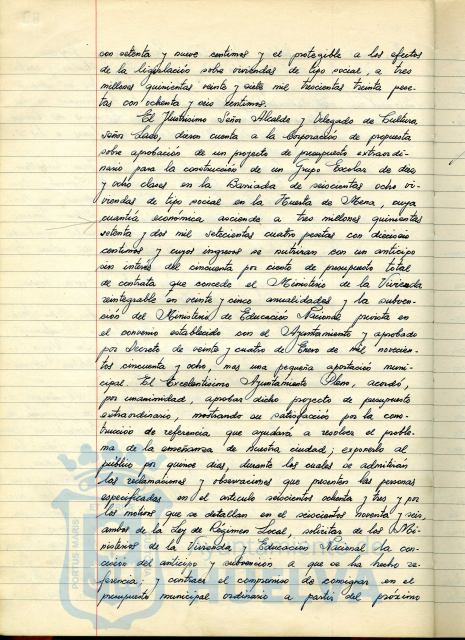 con setenta y nueve centimos y el protegible a los efectos
de la legislación sobre viviendas de tipo social, a tres
millones quinientas veinte y siete mil trescientas treinta pese-
tas con ochenta y seis centimos.
El Ilustrisimo Señor Alcalde y Delegado de Cultura
Señor Lado, dieron cuenta a la Corporación de propuesta
sobre aprobación de un proyecto de presupuesto extraordi-
nario para la construcción de un Grupo Escolar de diez
y ocho clases en la Barriada de seiscientas ocho vi-
viendas de tipo social en la Huerta de Mena, cuya
cuantía económica asciende a tres millones quinientas
setenta y dos mil setecientas cuatro pesetas con dieciseis
centimos y cuyos ingresos se nutrirán con un anticipo
sin interés del cincuenta por ciento de presupuesto total
de contrata que concede el Ministerio de la Vivienda
reintegrable en veinte y cinco anualidades y la subven-
ción del Ministerio de Educación Nacional prevista en
el convenio establecido con el Ayuntamiento y aprobado
por Decreto de veinte y cuatro de Enero de mil novecien-
tos cincuenta y ocho, mas una pequeña aportación muni-
cipal. El Excelentisimo Ayuntamiento Pleno, acordó,
por unanimidad, aprobar dicho proyecto de presupuesto
extraordinario, mostrando su satisfacción por la cons-
trucción de referencia, que ayudará a resolver el proble-
ma de la enseñanza de nuestra ciudad; exponerlo al
público por quince dias, durante los cuales se admitirán
las reclamaciones y observaciones que presenten las personas
especificadas en el articulo seiscientos ochenta y tres y por
los motivos que se detallan en el seiscientos noventa y seis,
ambos de la Ley de Regimen Local, solicitar de los Mi-
nisterios de la Vivienda y Educación Nacional la con-
cesión del anticipo y subvención a que se ha hecho re-
ferencia; y contraer el compromiso de consignar en el
presupuesto municipal ordinario a partir del próximo
PORTUS MARIS